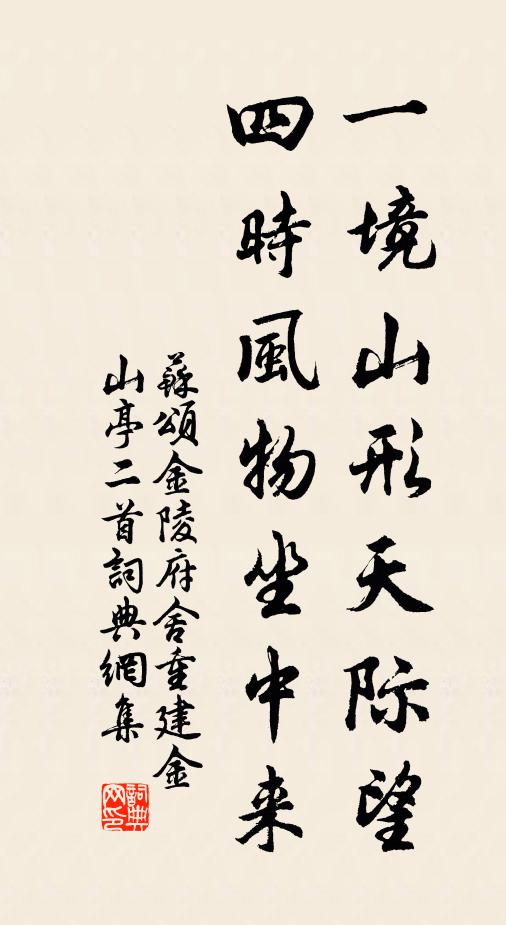 一境山形天际望
四時風物坐中来
蘇頌金陵府舍重建金
山亭二首詞典網集
詞典
网印